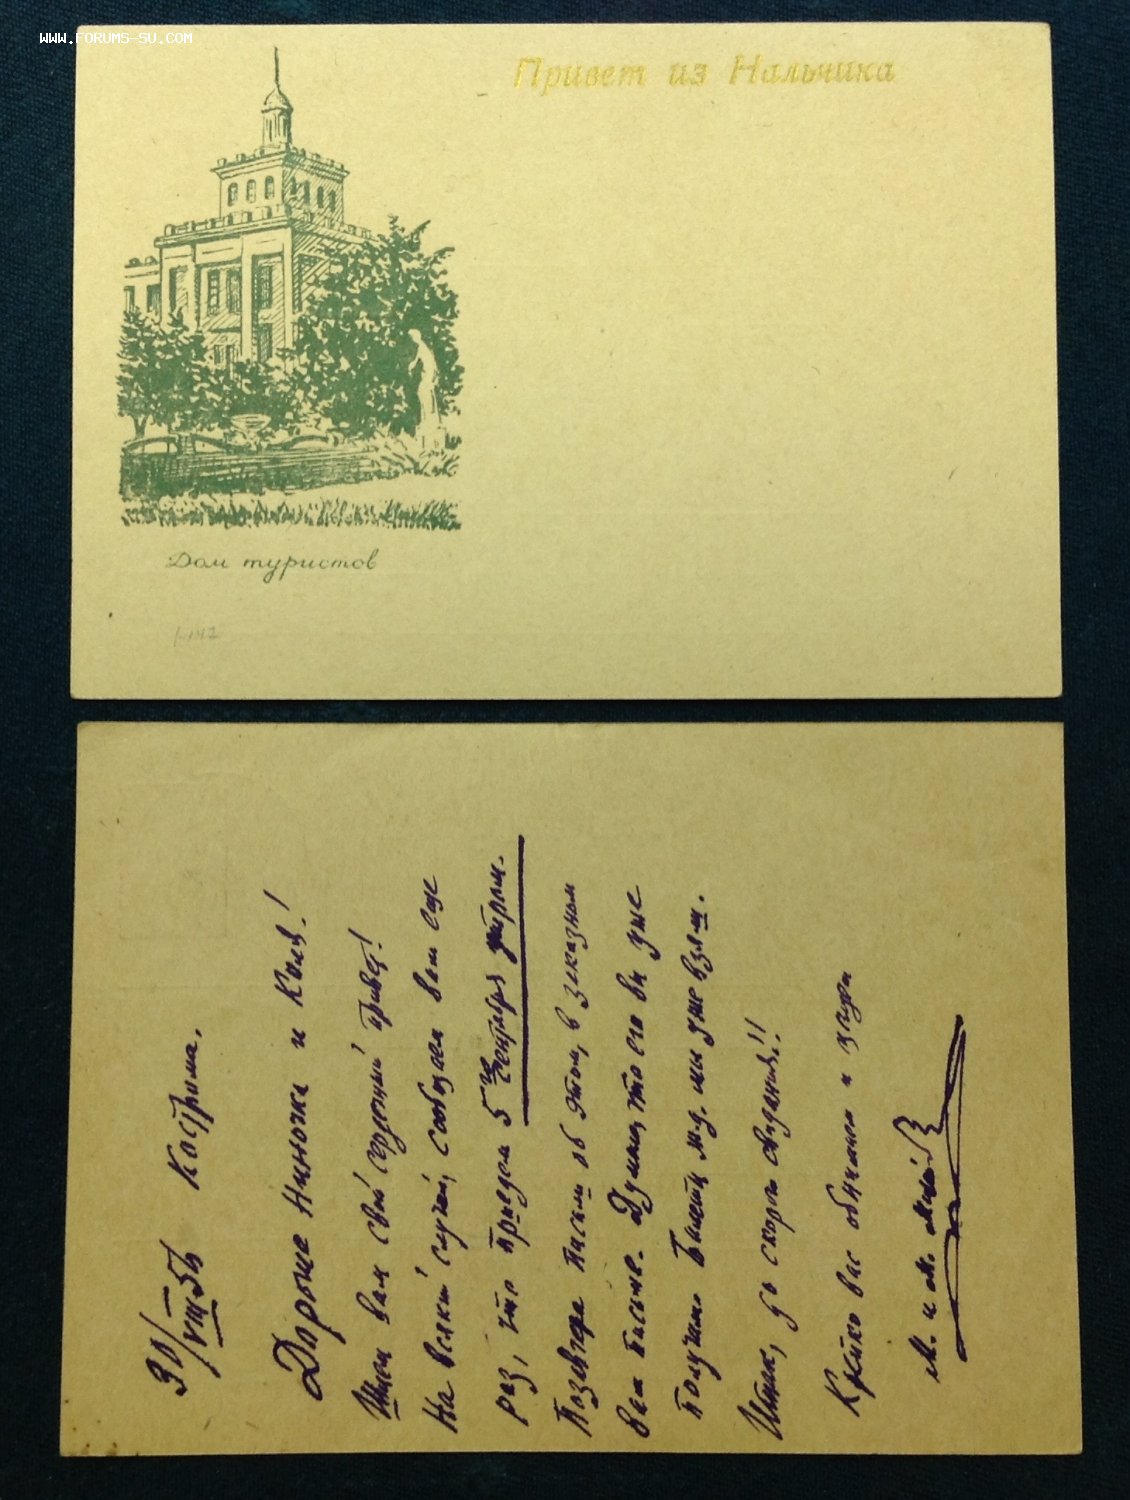 WWW.FORUMS-SU.COM
Привет из Нальчика
Дом туристов
30/VIII 56 Кострома.
Дорогие Ниночка и Коля!
Шлем вам свой сердечный привет!
На всякий случай, сообщаем вам еще
раз, что приедем 5го сентября утром.
Позавчера письмо об этом, в заказном
вам письме. Думаю, что его вы уже
получили Билеты м.д. мы уже взяли.
Итак, до скорого свидания!!
Крепко вас обнимаем и
М. и М.